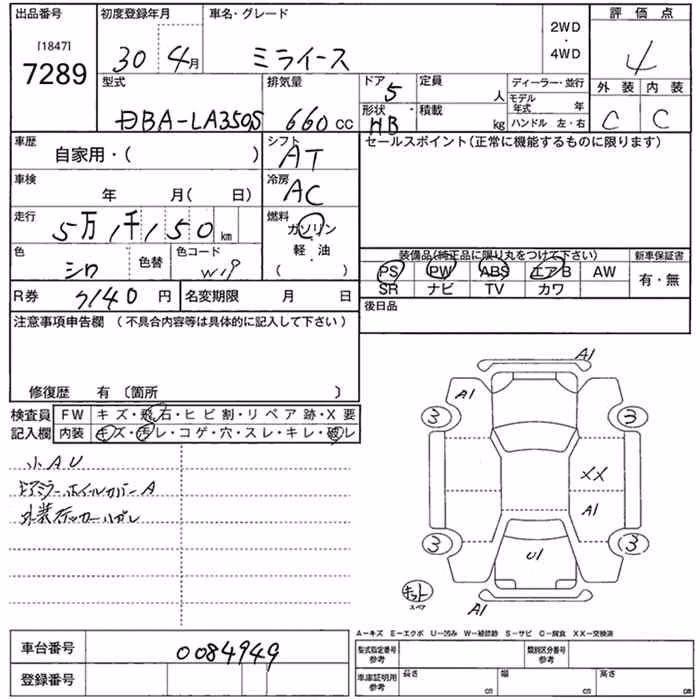 出品番号 初度登録年月 車名・グレード 2WD・4WD 評価点
[1847]
7289 30 4月 ミライース 4
型式 排気量 ドア 5 定員 人 ディーラー・並行 外装 内装
DBA-LA350S 660cc 形状 HB 積載 kg モデル年式 年 ハンドル 左・右 C C
車歴 自家用・( ) シフト AT セールスポイント(正常に機能するものに限ります)
車検 年 月( 日) 冷房 AC
走行 5万1千150km 燃料 ガソリン・軽・油 ( )
色 シロ 色替 色コード W19 装備品(純正品に限り丸をつけて下さい) 新車保証書
PS PW ABS エアB AW 有・無
SR ナビ TV カワ
R券 7140円 名変期限 月 日 後日品
注意事項申告欄 (不具合内容等は具体的に記入して下さい)
修復歴 有 〔箇所 〕
検査員 FW キズ・飛石・ヒビ割・リペア跡・X要
記入欄 内装 キズ・汚レ・コゲ・穴・スレ・キレ・破レ
小AU
ドアミラーホイールカバーA
外装ステッカーハガレ
A1
A1
3 3
XX
A1
3 3
U1
スペア
A1
A-キズ E-エクボ U-凹み W-補修跡 S-サビ C-腐食 XX-交換済
車台番号 0084949 型式指定番号 参考 類別区分番号 参考
登録番号 車庫証明用 参考 長さ cm 幅 cm 高さ cm